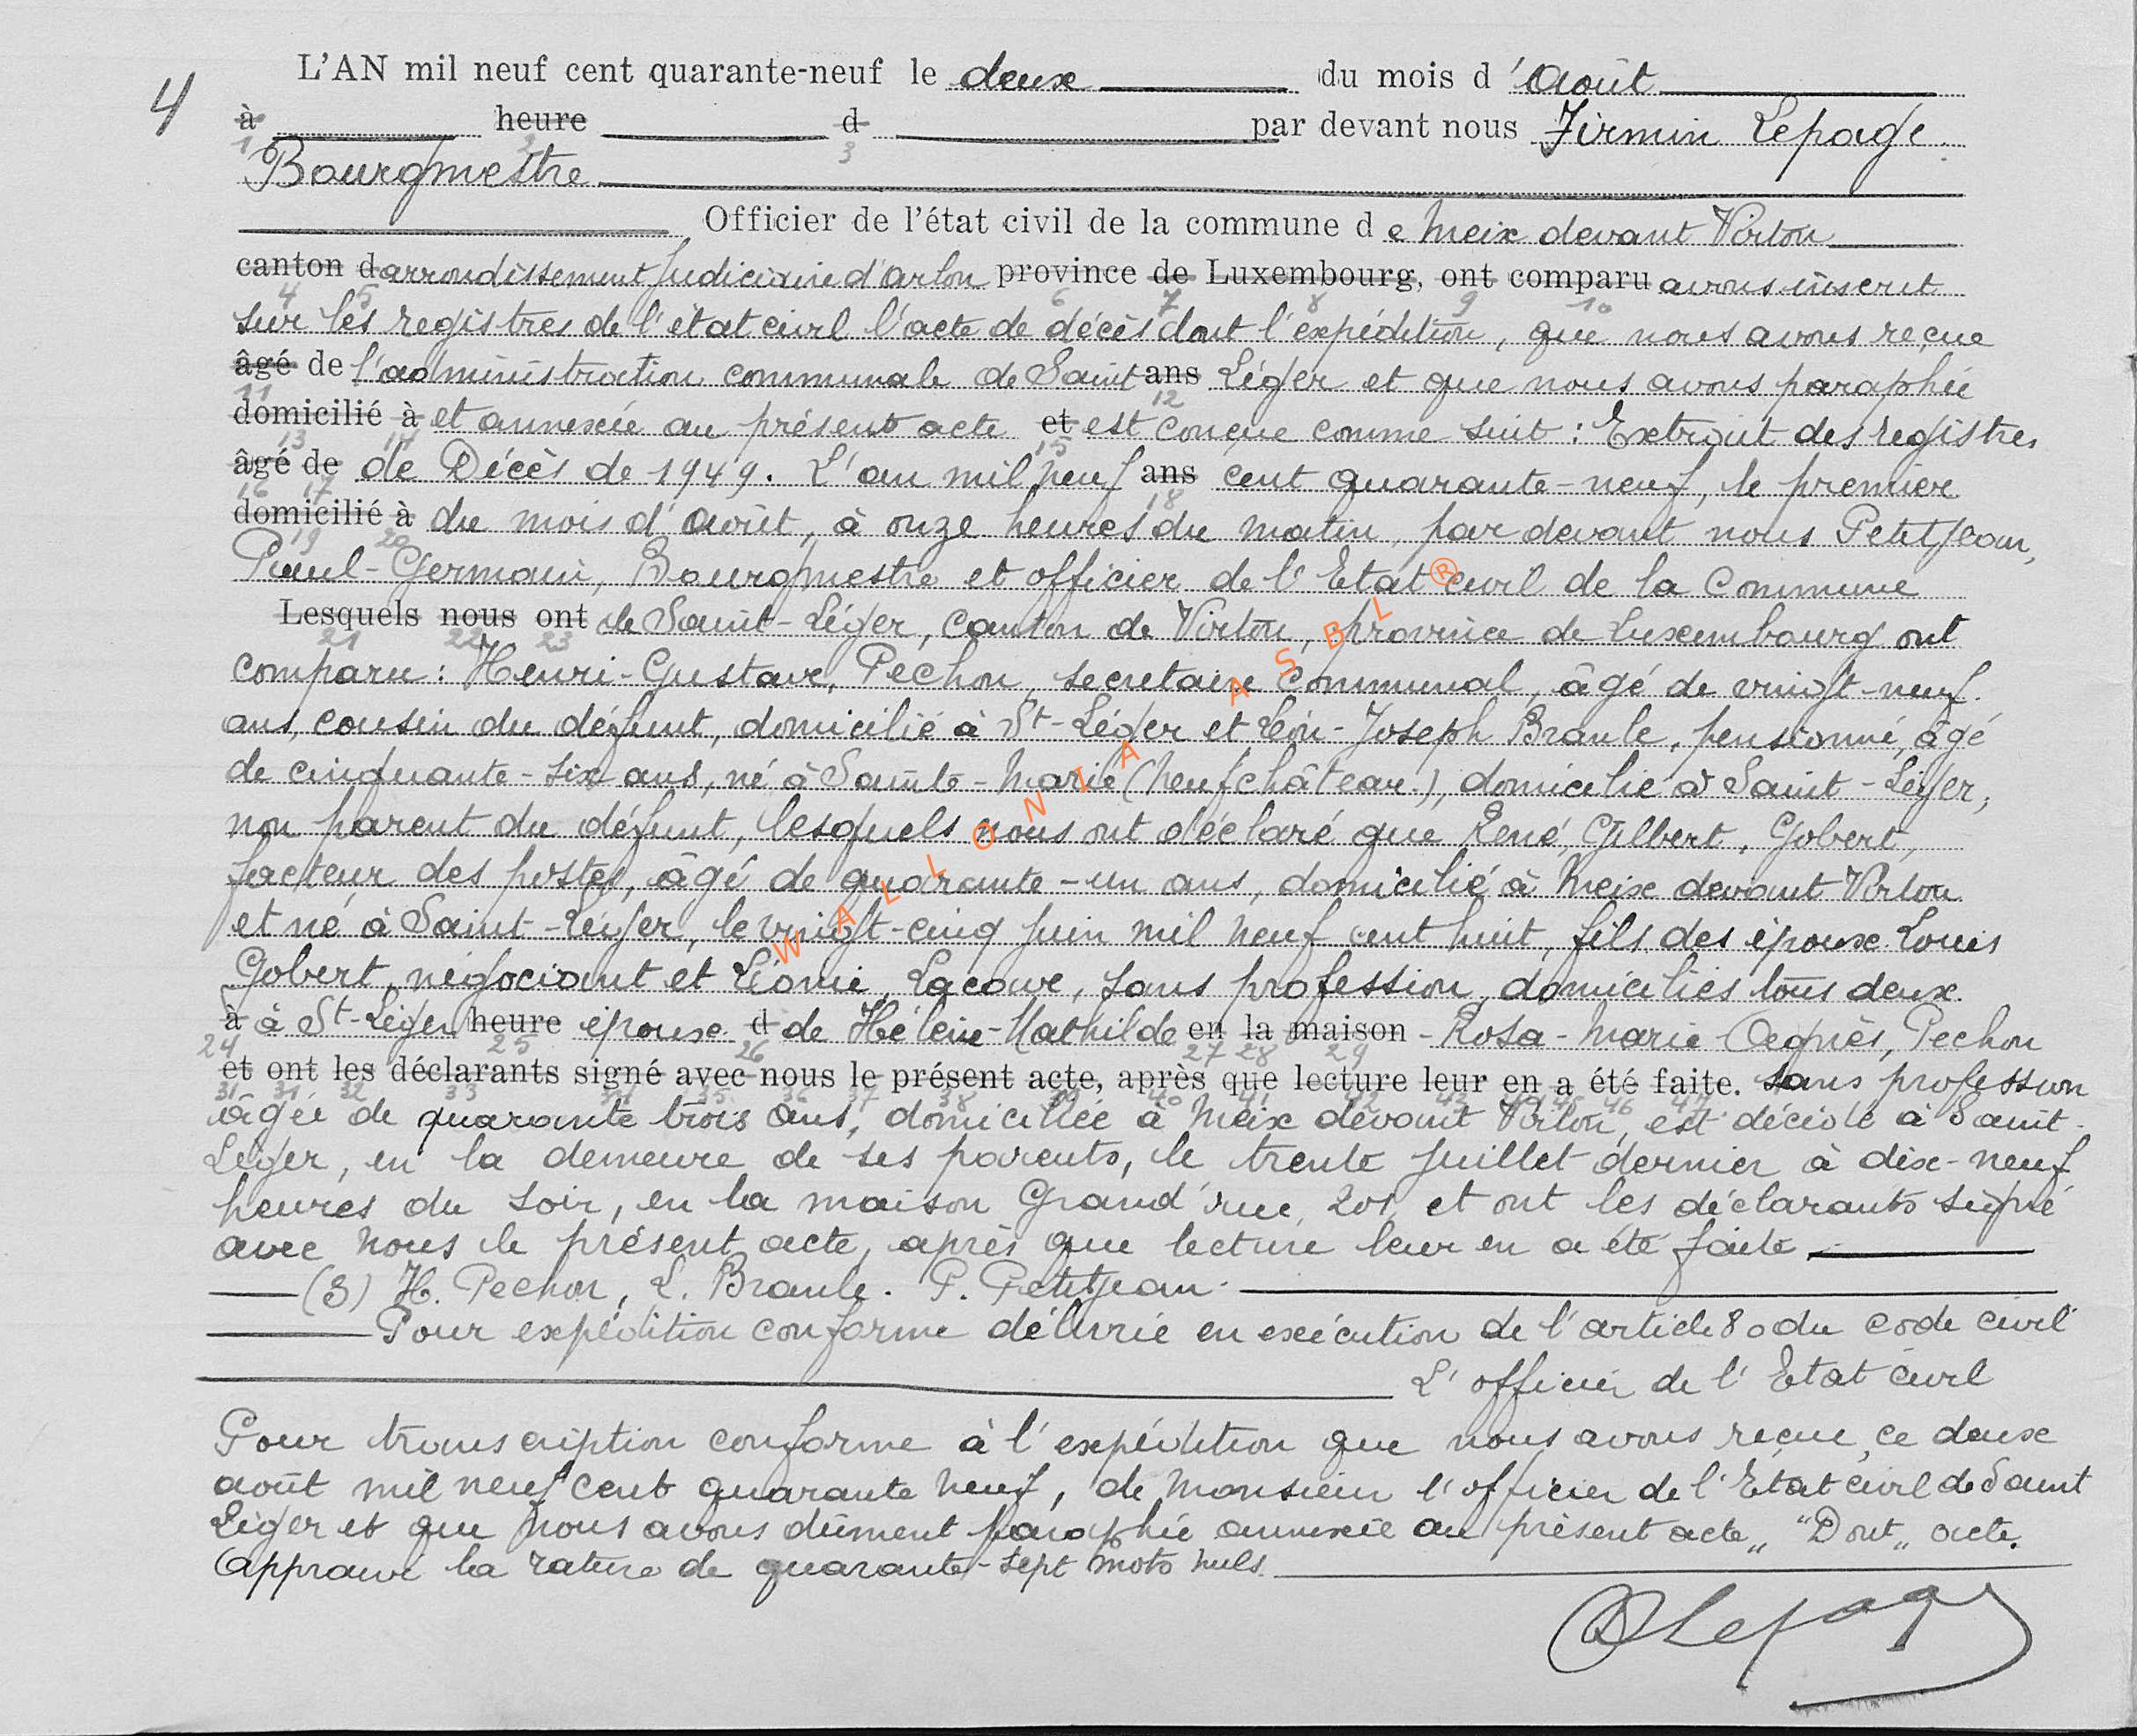 4
L'AN mil neuf cent quarante-neuf le deux du mois d'Août
à heure d par devant nous Firmin Lepage
Bourgmestre
Officier de l'état civil de la commune de Meix devant Virton
canton d arrondissement judiciaire d'arlon province de Luxembourg, ont comparu avons inscrit
sur les registres de l'état civil l'acte de décès dont l'expédition, que nous avons reçue
âgé de l'administration communale de Saint ans Léger et que nous avons paraphée
domicilié à et annexée au présent acte et est conçue comme suit : Extrait des registres
âgé de de Décès de 1949. L'an mil neuf ans cent quarante-neuf, le premier
domicilié à du mois d'août, à onze heures du matin, par devant nous Petitjean,
Paul-Germain, Bourgmestre et officier de l'Etat civil de la Commune
Lesquels nous ont de Saint-Léger, canton de Virton, province de Luxembourg ont
comparu : Henri-Gustave, Pechon, secretaire communal, âgé de vingt-neuf
ans, cousin du défunt, domicilié à St-Léger et Léon-Joseph Braule, pensionné, âgé
de cinquante-six ans, né à Sainte-Marie (Neufchâteau), domicilié à Saint-Léger,
non parent du défunt, lesquels nous ont déclaré que René, Gilbert, Gobert,
facteur des postes, âgé de quarante-un ans, domicilié à Meix devant Virton
et né à Saint-Léger, le vingt-cinq juin mil neuf cent huit, fils des époux Louis
Gobert, négociant et Léonie, Lacave, sans profession, domiciliés tous deux
à à St-Léger heure époux d de Hélène-Mathilde en la maison -Rosa-Marie Agnès, Pechon
et ont les déclarants signé avec nous le présent acte, après que lecture leur en a été faite. sans profession
âgée de quarante trois ans, domiciliée à Meix devant Virton, est décédé à Saint-
Léger, en la demeure de ses parents, le trente juillet dernier à dix-neuf
heures du soir, en la maison Grand'rue, 201, et ont les déclarants signé
avec nous le présent acte, après que lecture leur en a été faite
(S) H. Pechon, L. Braule. P. Petitjean.
Pour expédition conforme délivrée en exécution de l'article 80 du code civil
L'officier de l'Etat civil
Pour transcription conforme à l'expédition que nous avons reçue, ce deux
août mil neuf cent quarante neuf, de Monsieur l'officier de l'Etat civil de Saint
Léger et que nous avons dûment paraphée annexée au présent acte„ "Dont„ acte.
Approuvé la rature de quarante-sept mots nuls.
Lepage
WALLONIA ASBL ®